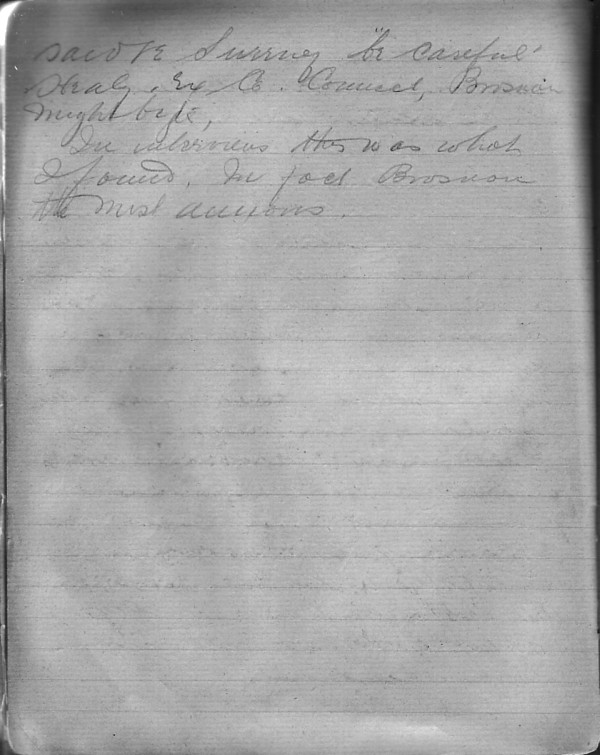 said to Surrey "be careful"
Healy, Ex. Co. Council, Brosnan
might bite,
In interviews this was what
I found. In fact Brosnan
the most anxious.